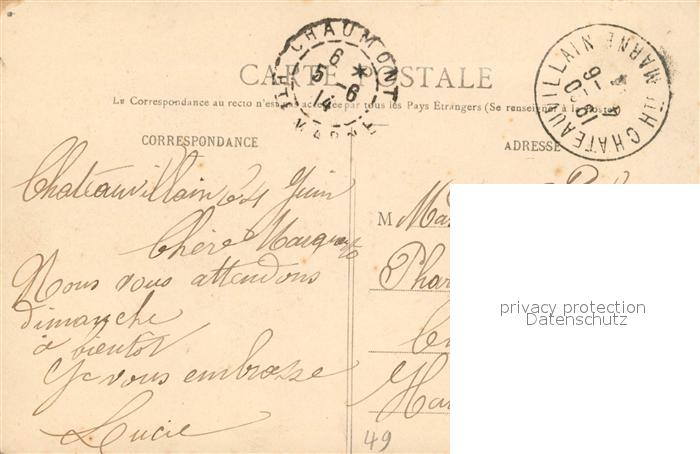 CHAUMONT
6 *
5-6
14
HTE MARNE
CHATEAUVILLAIN
HTE MARNE
CARTE POSTALE
La Correspondance au recto n'est pas acceptée par tous les Pays Étrangers (Se renseigner à la poste)
CORRESPONDANCE
Chateauvillain le 4 Juin
Chère Marguerite
Nous vous attendons
dimanche
à bientôt
Je vous embrasse
Lucie
ADRESSE
M
49
privacy protection
Datenschutz